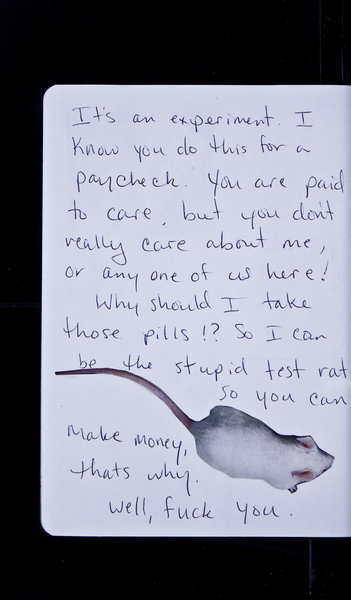 It's an experiment. I
know you do this for a
paycheck. You are paid
to care, but you don't
really care about me,
or any one of us here!
Why should I take
those pills!? So I can
be the stupid test rat
so you can
make money,
thats why.
Well, fuck you.